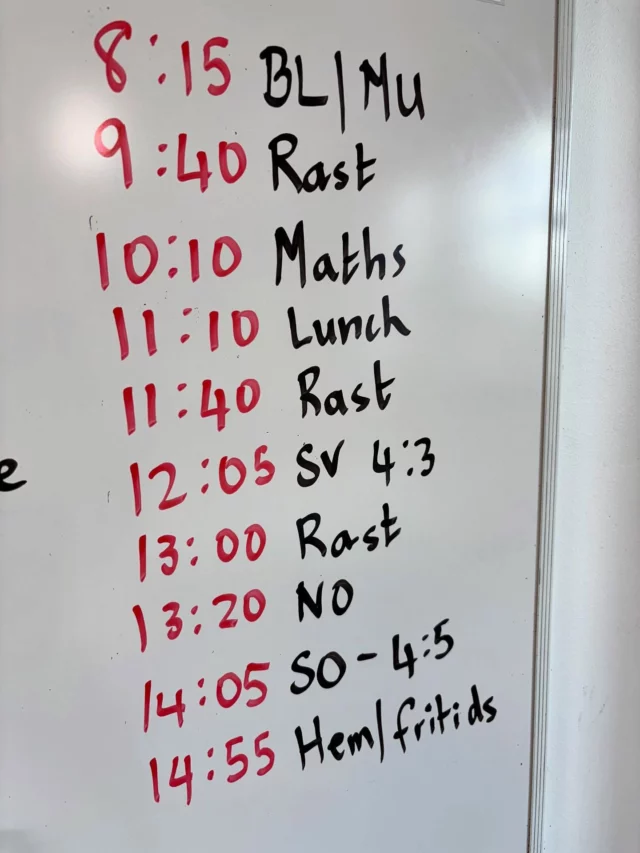 8:15 BL/Mu
9:40 Rast
10:10 Maths
11:10 Lunch
11:40 Rast
12:05 SV 4:3
13:00 Rast
13:20 NO
14:05 SO - 4:5
14:55 Hem/fritids
e